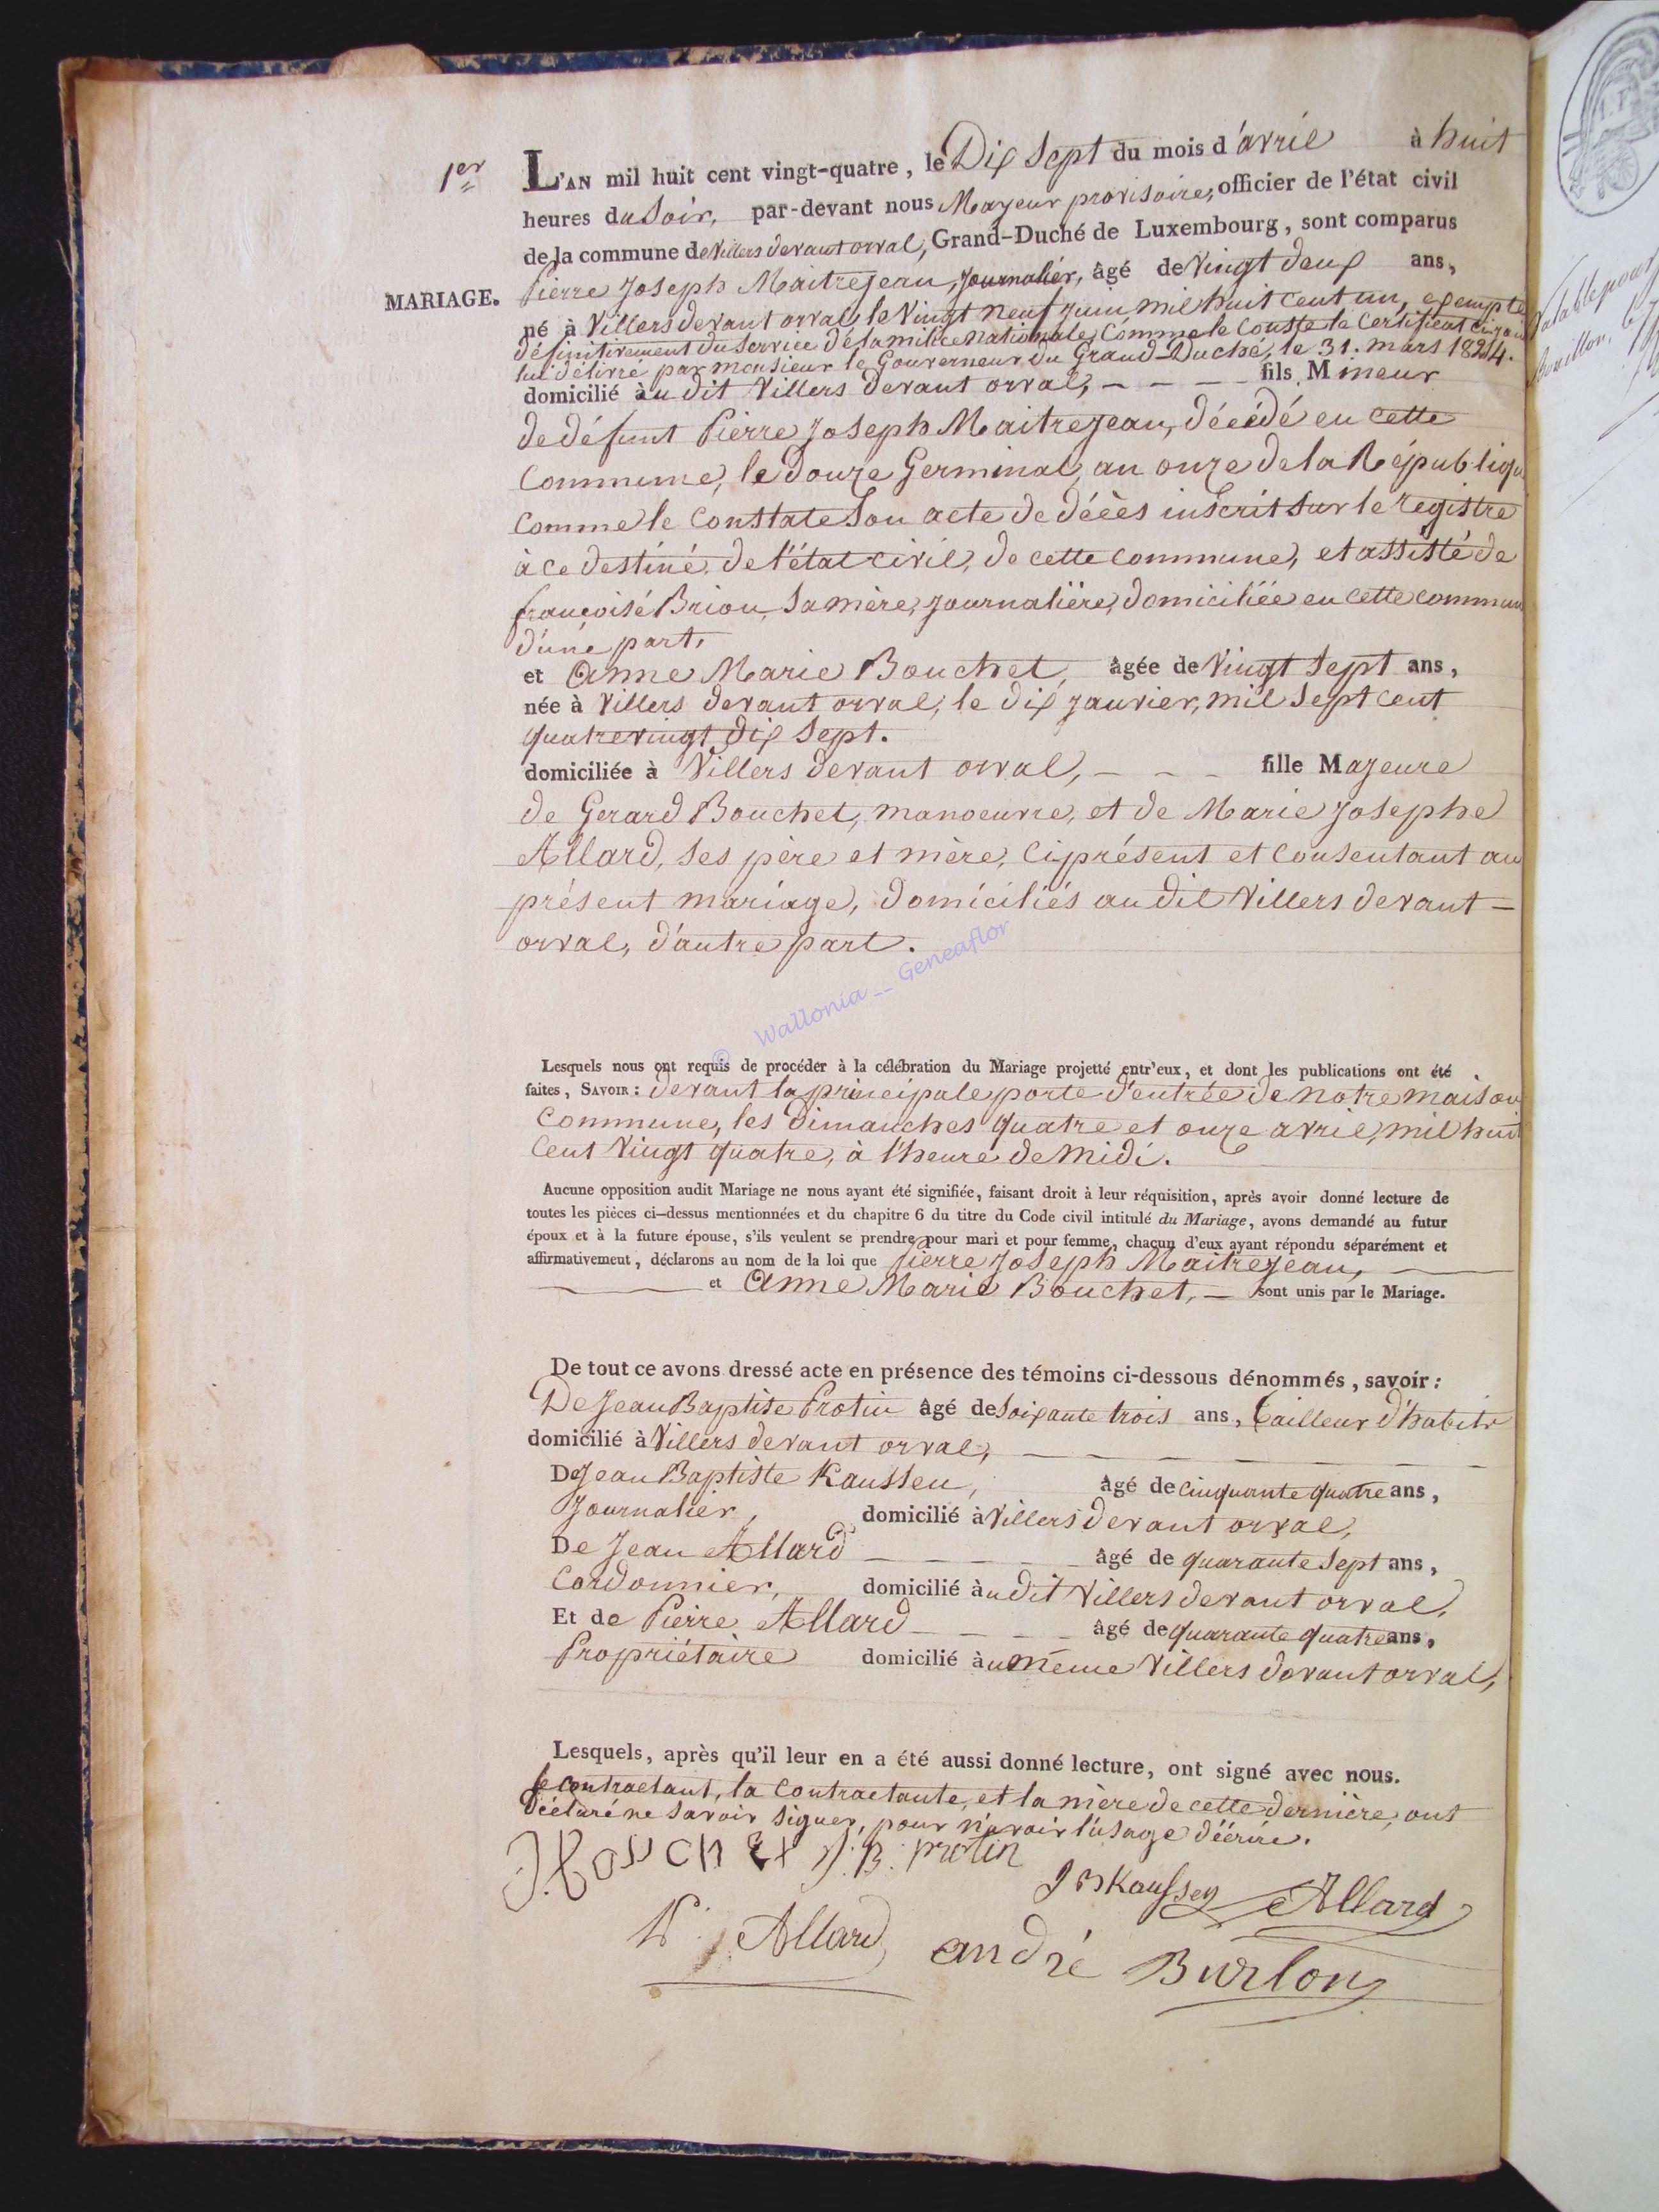 1er
L'AN mil huit cent vingt-quatre, le Dix Sept du mois d'avril à huit
heures du Soir, par-devant nous Mayeur provisoire, officier de l'état civil
de la commune de Villers devant orval, Grand-Duché de Luxembourg, sont comparus
MARIAGE. Pierre Joseph Maitrejean, Journalier, âgé de Vingt deux ans,
né à Villers devant orval, le Vingt neuf juin mil huit cent un, exempté
définitivement du Service de la milice nationale, Comme le Conste le Certificat
lui délivré par monsieur le Gouverneur du Grand-Duché, le 31. mars 1824.
domicilié au dit Villers devant orval, - - - - fils Mineur
de défunt Pierre Joseph Maitrejean, décédé en cette
Commune, le douze Germinal, an onze de la Républiqu
Comme le Constate Son acte de décès inscrit Sur le registre
à ce destiné, de l'état civil, de cette commune, et assisté de
françoise Briou, Sa mère, Journalière, domiciliée en cette commun
d'une part,
et Anne Marie Bouchet, âgée de Vingt Sept ans,
née à Villers devant orval, le dix janvier, mil Sept cent
quatrevingt dix Sept.
domiciliée à Villers devant orval, - - - fille Majeure
de Gerard Bouchet, manoeuvre, et de Marie Josephe
Allard, Ses père et mère, ci présent et Consentant au
présent mariage, domiciliés au dit Villers devant-
orval, d'autre part.
© Wallonia __ Geneaflor
Lesquels nous ont requis de procéder à la célébration du Mariage projetté entr'eux, et dont les publications ont été
faites, SAVOIR : devant la principale porte d'entrée de notre maison
Commune, les Dimanches quatre et onze avril, mil huit
Cent Vingt quatre, à l'heure de Midi.
Aucune opposition audit Mariage ne nous ayant été signifiée, faisant droit à leur réquisition, après avoir donné lecture de
toutes les pièces ci-dessus mentionnées et du chapitre 6 du titre du Code civil intitulé du Mariage, avons demandé au futur
époux et à la future épouse, s'ils veulent se prendre pour mari et pour femme, chacun d'eux ayant répondu séparément et
affirmativement, déclarons au nom de la loi que Pierre Joseph Maitrejean,
et Anne Marie Bouchet, — sont unis par le Mariage.
De tout ce avons dressé acte en présence des témoins ci-dessous dénommés, savoir :
De Jean Baptiste Protin âgé de Soixante trois ans, tailleur d'habits
domicilié à Villers devant orval,
De Jean Baptiste Kaussen, âgé de cinquante quatre ans,
Journalier, domicilié à Villers devant orval,
De Jean Allard âgé de quarante Sept ans,
Cordonnier, domicilié au dit Villers devant orval,
Et de Pierre Allard âgé de quarante quatre ans,
Propriétaire domicilié au même Villers devant orval,
Lesquels, après qu'il leur en a été aussi donné lecture, ont signé avec nous.
le Contractant, la Contractante, et la mère de cette dernière, ont
déclaré ne Savoir Signer, pour n'avoir l'usage d'écrire.
Bouchet J. B. protin
J B Kaussen Allard
P. Allard andré Burlon
Valable pour
Bouillon, le